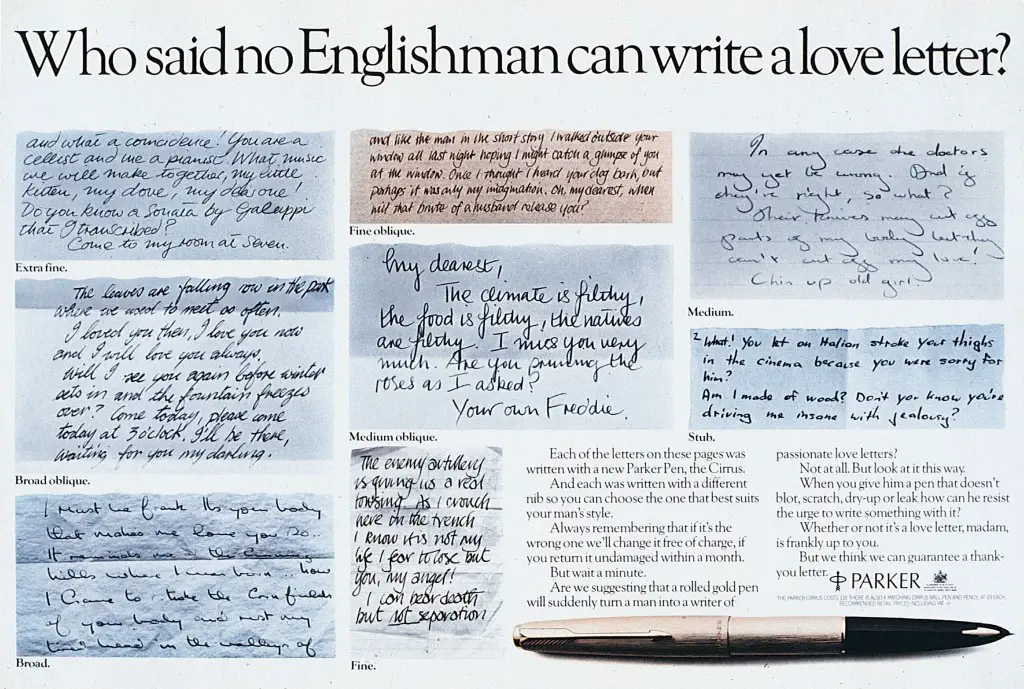 Who said no Englishman can write a love letter?
and what a coincidence! You are a
cellist and me a pianist. What music
we will make together, my little
kitten, my dove, my dear one!
Do you know a Sonata by Galuppi
that I transcribed?
Come to my room at Seven.
Extra fine.
The leaves are falling now in the park
where we used to meet so often.
I loved you then, I love you now
and I will love you always.
Will I see you again before winter
sets in and the fountain freezes
over? Come today, please come
today at 3 o'clock, I'll be there,
waiting for you my darling.
Broad oblique.
I must be frank. It's your body
that makes me love you so..
It reminds me the
hills where I was born .. how
I crave to take the Cornfields
of your body and rest my
tired head in the valleys of
Broad.
and like the man in the short story I walked outside your
window all last night hoping I might catch a glimpse of you
at the window. Once I thought I heard your dog bark, but
perhaps it was only my imagination. Oh, my dearest, when
will that brute of a husband release you?
Fine oblique.
My dearest,
The climate is filthy,
the food is filthy, the natives
are filthy. I miss you very
much. Are you pruning the
roses as I asked?
Your own Freddie.
Medium oblique.
The enemy artillery
is giving us a real
tousing. As I crouch
here on the trench
I know it is not my
life I fear to lose but
you, my angel!
I can bear death
but not separation!
Fine.
In any case the doctors
may yet be wrong. And if
they're right, so what?
Their knives may cut off
parts of my body but they
can't cut off my love!
Chin up old girl.
Medium.
2 What! You let an Italian stroke your thighs
in the cinema because you were sorry for
him?
Am I made of wood? Don't you know you're
driving me insane with jealousy?
Stub.
Each of the letters on these pages was
written with a new Parker Pen, the Cirrus.
And each was written with a different
nib so you can choose the one that best suits
your man's style.
Always remembering that if it's the
wrong one we'll change it free of charge, if
you return it undamaged within a month.
But wait a minute.
Are we suggesting that a rolled gold pen
will suddenly turn a man into a writer of
passionate love letters?
Not at all. But look at it this way.
When you give him a pen that doesn't
blot, scratch, dry-up or leak how can he resist
the urge to write something with it?
Whether or not it's a love letter, madam,
is frankly up to you.
But we think we can guarantee a thank-
you letter.
PARKER
THE PARKER CIRRUS COSTS THERE IS ALSO A MATCHING CIRRUS BALL PEN AND PENCIL AT EACH.
RECOMMENDED RETAIL PRICES INCLUDING VAT